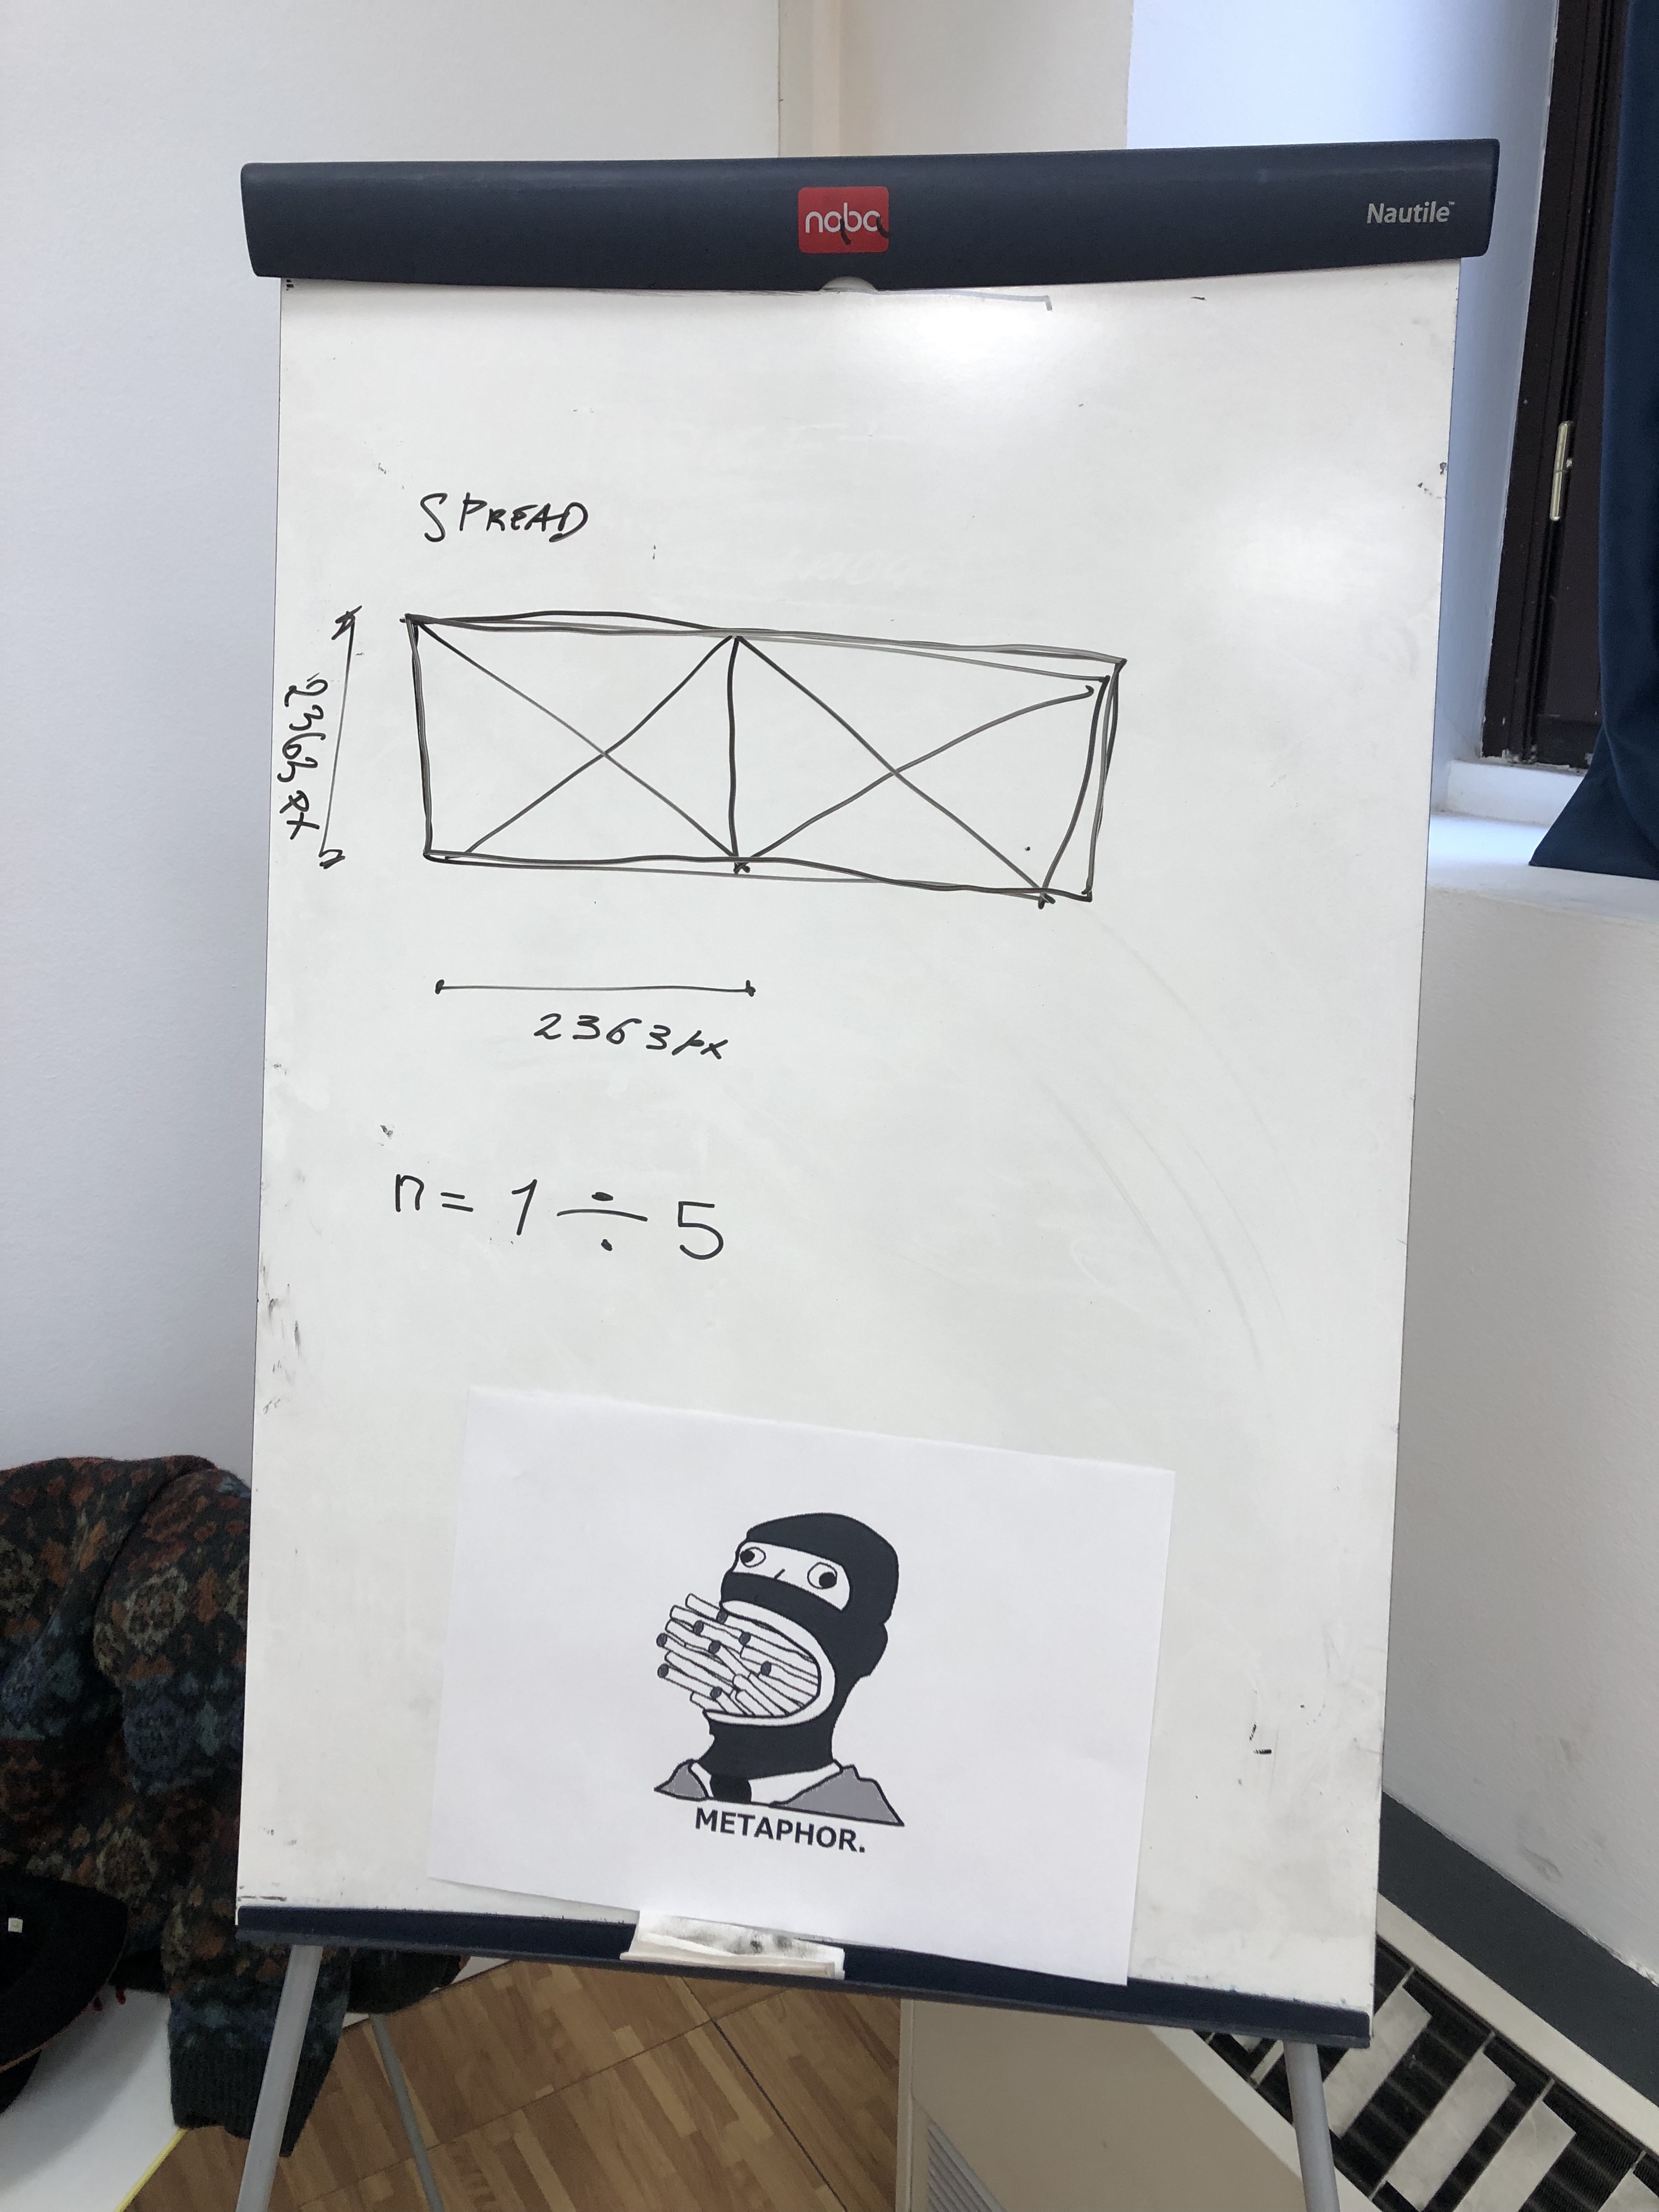 nobo
Nautile™
SPREAD
2363 px
2363px
n = 1 ÷ 5
METAPHOR.